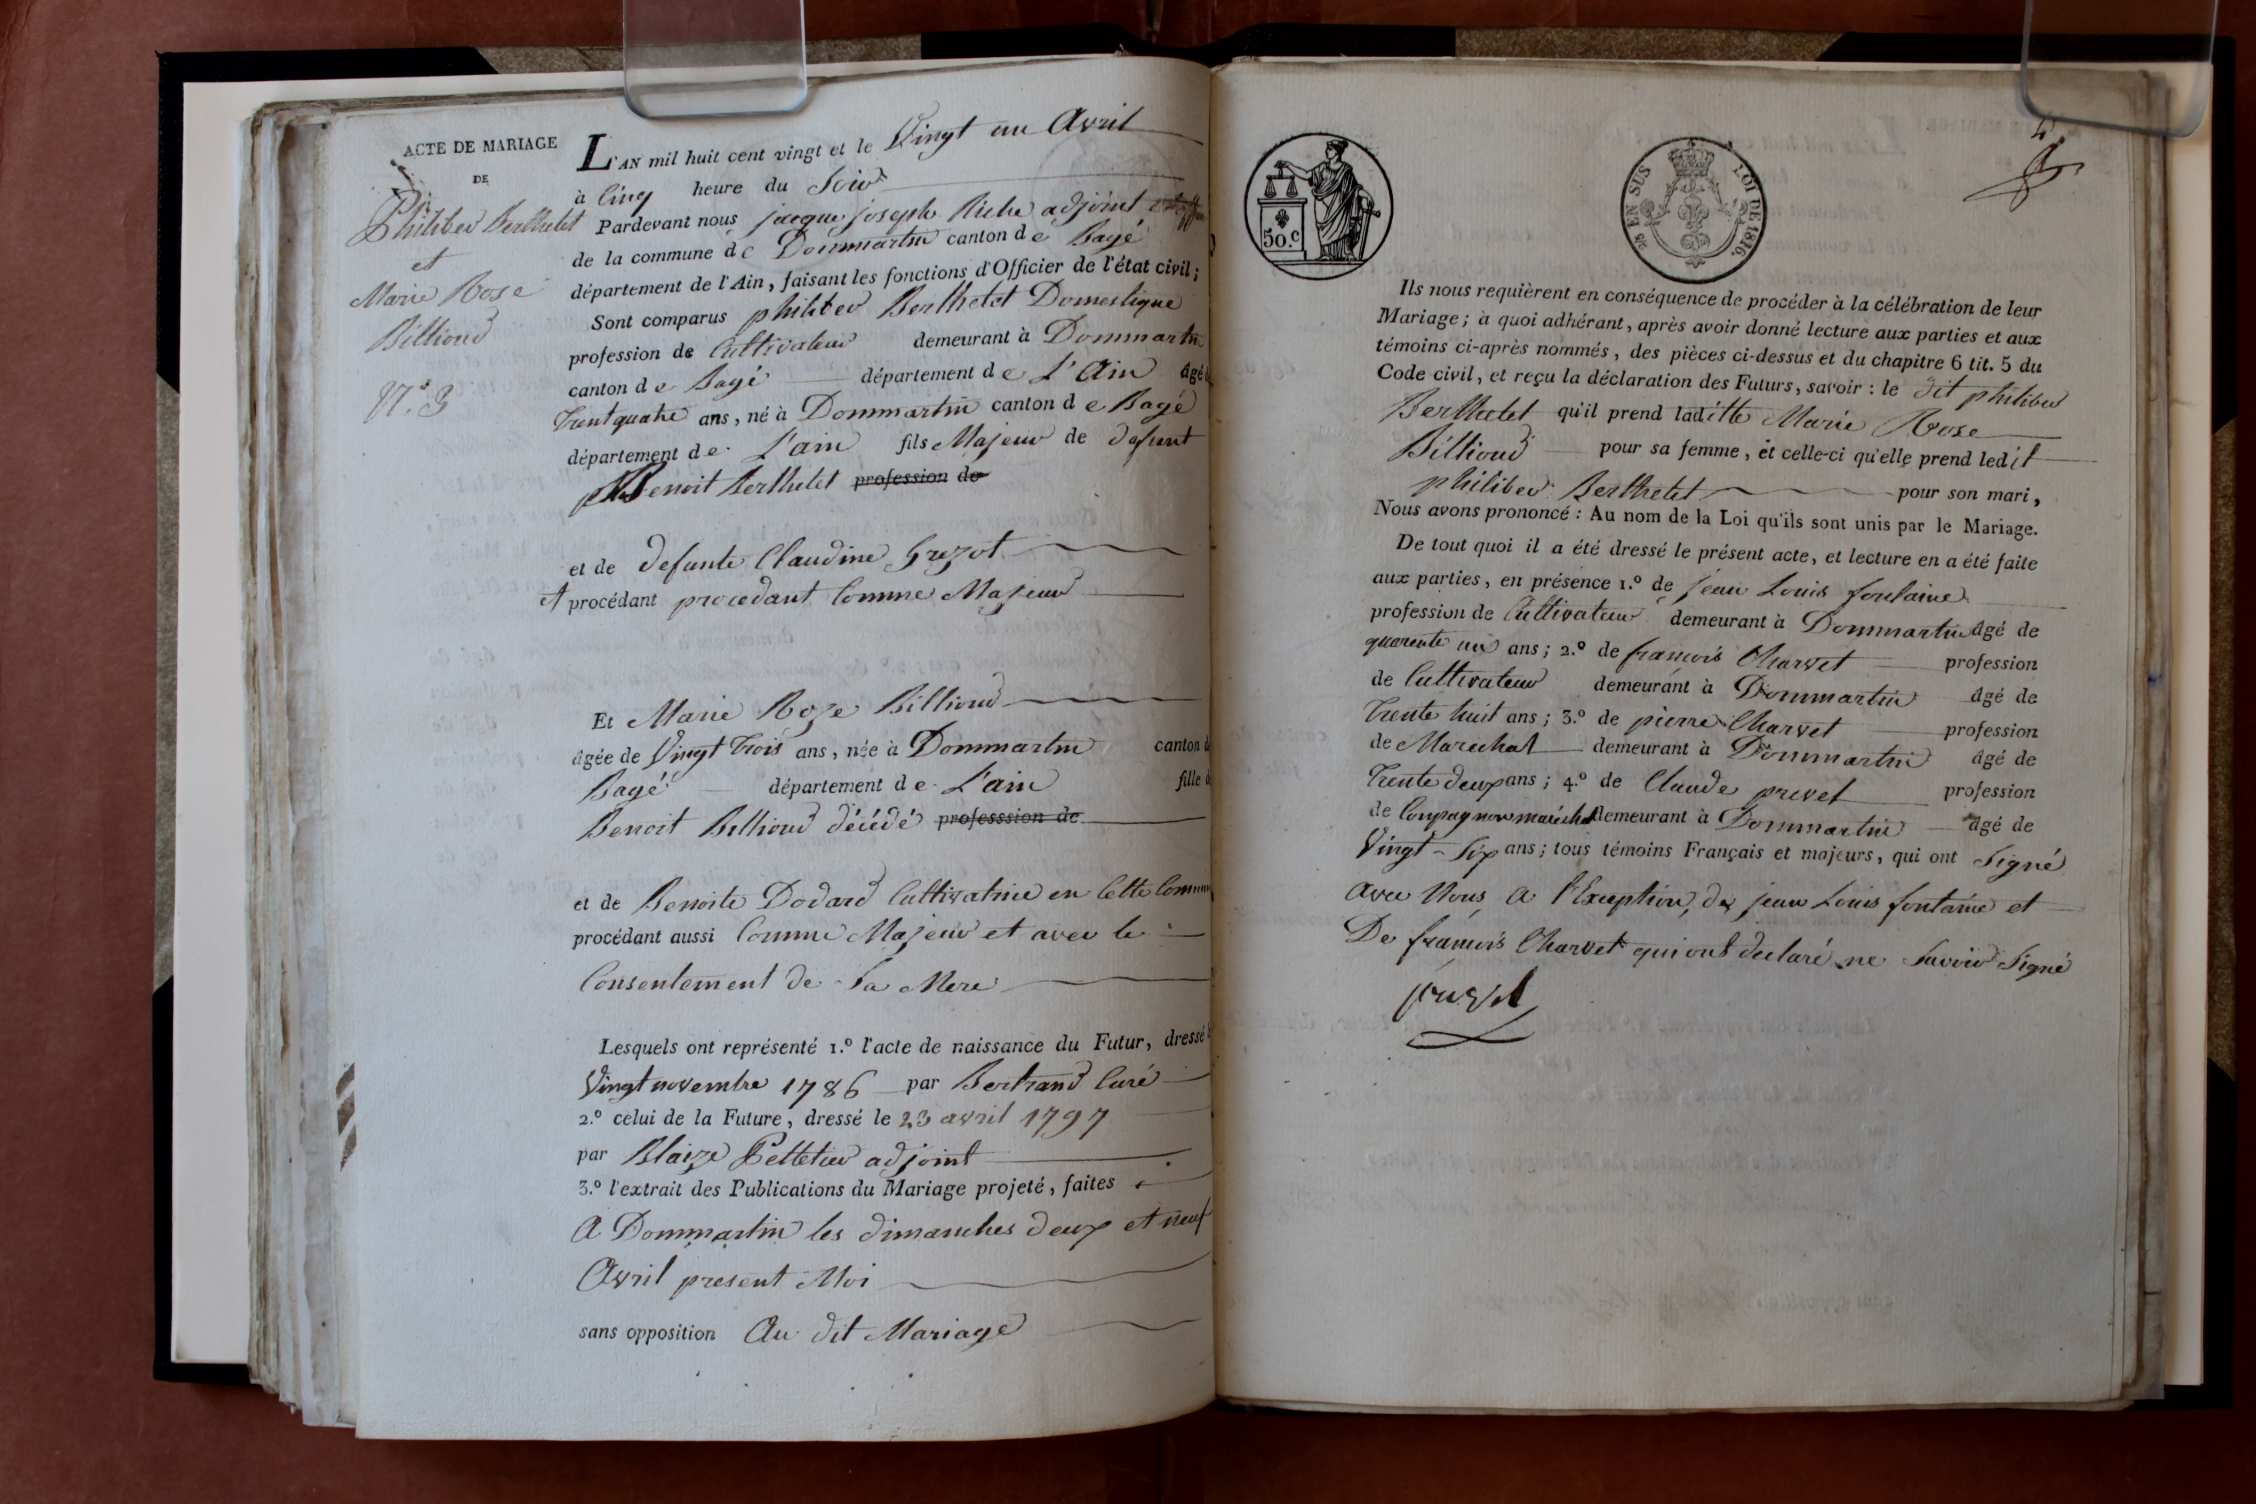 ACTE DE MARIAGE
DE
Philiber Berthelet
et
Marie Rose
Billioud
N.° 3
L'AN mil huit cent vingt et le Vingt un Avril
à Cinq heure du Soir
Pardevant nous jacque joseph Riche adjoint
de la commune de Dommartin canton de Bagé
département de l'Ain, faisant les fonctions d'Officier de l'état civil;
Sont comparus philiber Berthelet Domestique
profession de Cultivateur demeurant à Dommartin
canton de Bagé département de L'Ain âgé
trent quatre ans, né à Dommartin canton de Bagé
département de L'ain fils Majeur de defunt
Benoit Berthelet profession de
et de defunte Claudine Grezot
et procédant procedant Comme Majeur
Et Marie Roze Billioud
âgée de Vingt trois ans, née à Dommartin canton d
Bagé département de L'ain fille d
Benoit Billioud décédé professsion de
et de Benoite Dodard Cultivatrice en Cette Commun
procédant aussi Comme Majeur et avec le
Consentement de Sa Mere
Lesquels ont représenté 1.° l'acte de naissance du Futur, dressé
Vingt novembre 1786 par Bertrand Curé
2.° celui de la Future, dressé le 23 avril 1797
par Blaize Pelletier adjoint
3.° l'extrait des Publications du Mariage projeté, faites
A Dommartin les dimanches deux et neuf
Avril present Moi
sans opposition Au dit Mariage
4
50.C
25 EN SUS LOI DE 1816.
Ils nous requièrent en conséquence de procéder à la célébration de leur
Mariage; à quoi adhérant, après avoir donné lecture aux parties et aux
témoins ci-après nommés, des pièces ci-dessus et du chapitre 6 tit. 5 du
Code civil, et reçu la déclaration des Futurs, savoir: le dit philiber
Berthelet qu'il prend laditte Marie Rose
Billioud pour sa femme, et celle-ci qu'elle prend ledit
philiber Berthelet pour son mari,
Nous avons prononcé: Au nom de la Loi qu'ils sont unis par le Mariage.
De tout quoi il a été dressé le présent acte, et lecture en a été faite
aux parties, en présence 1.° de jean Louis fontaine
profession de Cultivateur demeurant à Dommartin âgé de
quarente un ans; 2.° de francois Charvet profession
de Cultivateur demeurant à Dommartin âgé de
trente huit ans; 3.° de pierre Charvet profession
de Marechal demeurant à Dommartin âgé de
trente deux ans; 4.° de Claude privet profession
de Compagnon maréchal demeurant à Dommartin âgé de
Vingt-Six ans; tous témoins Français et majeurs, qui ont Signé
avec Nous a l'Exception de jean Louis fontaine et
De francois Charvet qui ont declaré ne Savoir Signé